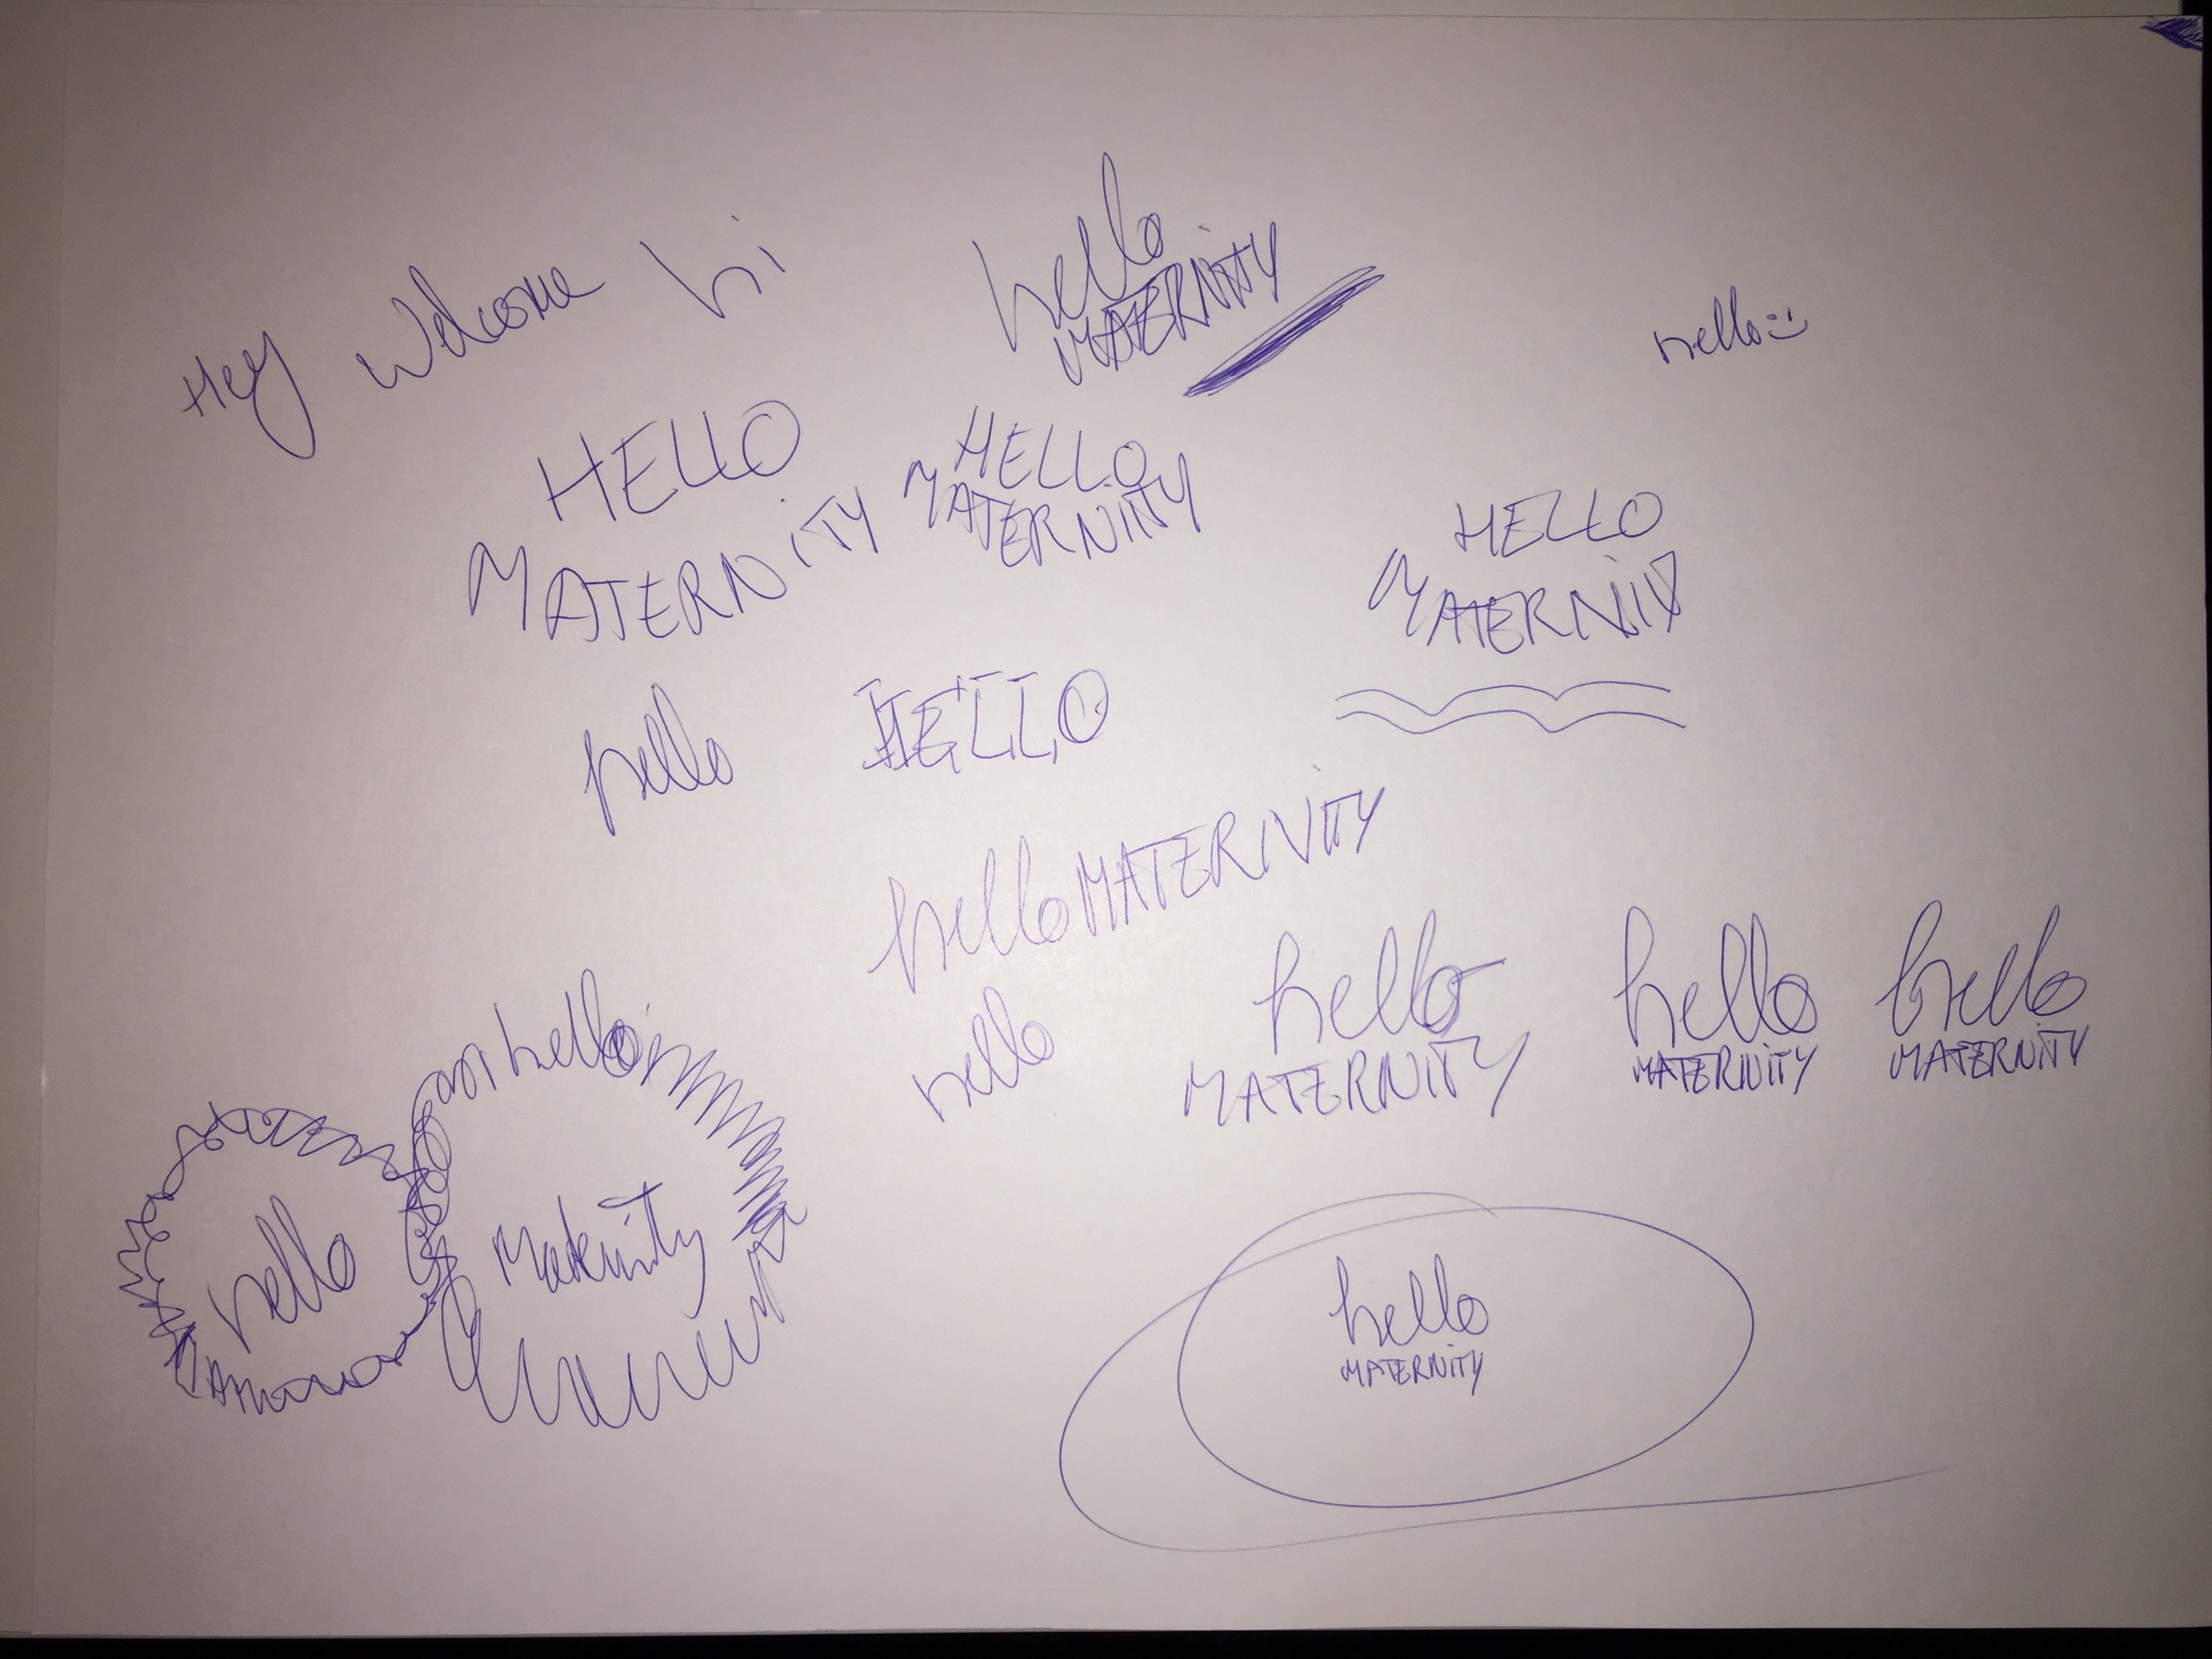 Hey Welcome hi
hello
MATERNITY
hello
HELLO
MATERNITY
HELLO
MATERNITY
HELLO
MATERNITY
hello
HELLO
hello MATERNITY
hello
hello
MATERNITY
hello
MATERNITY
hello
MATERNITY
hello
hello
Maternity
hello
MATERNITY